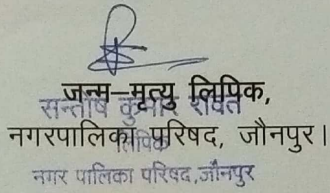 जन्म–मृत्यु लिपिक,
सन्तोष कुमार रावत
नगरपालिका परिषद, जौनपुर।
लिपिक
नगर पालिका परिषद,जौनपुर